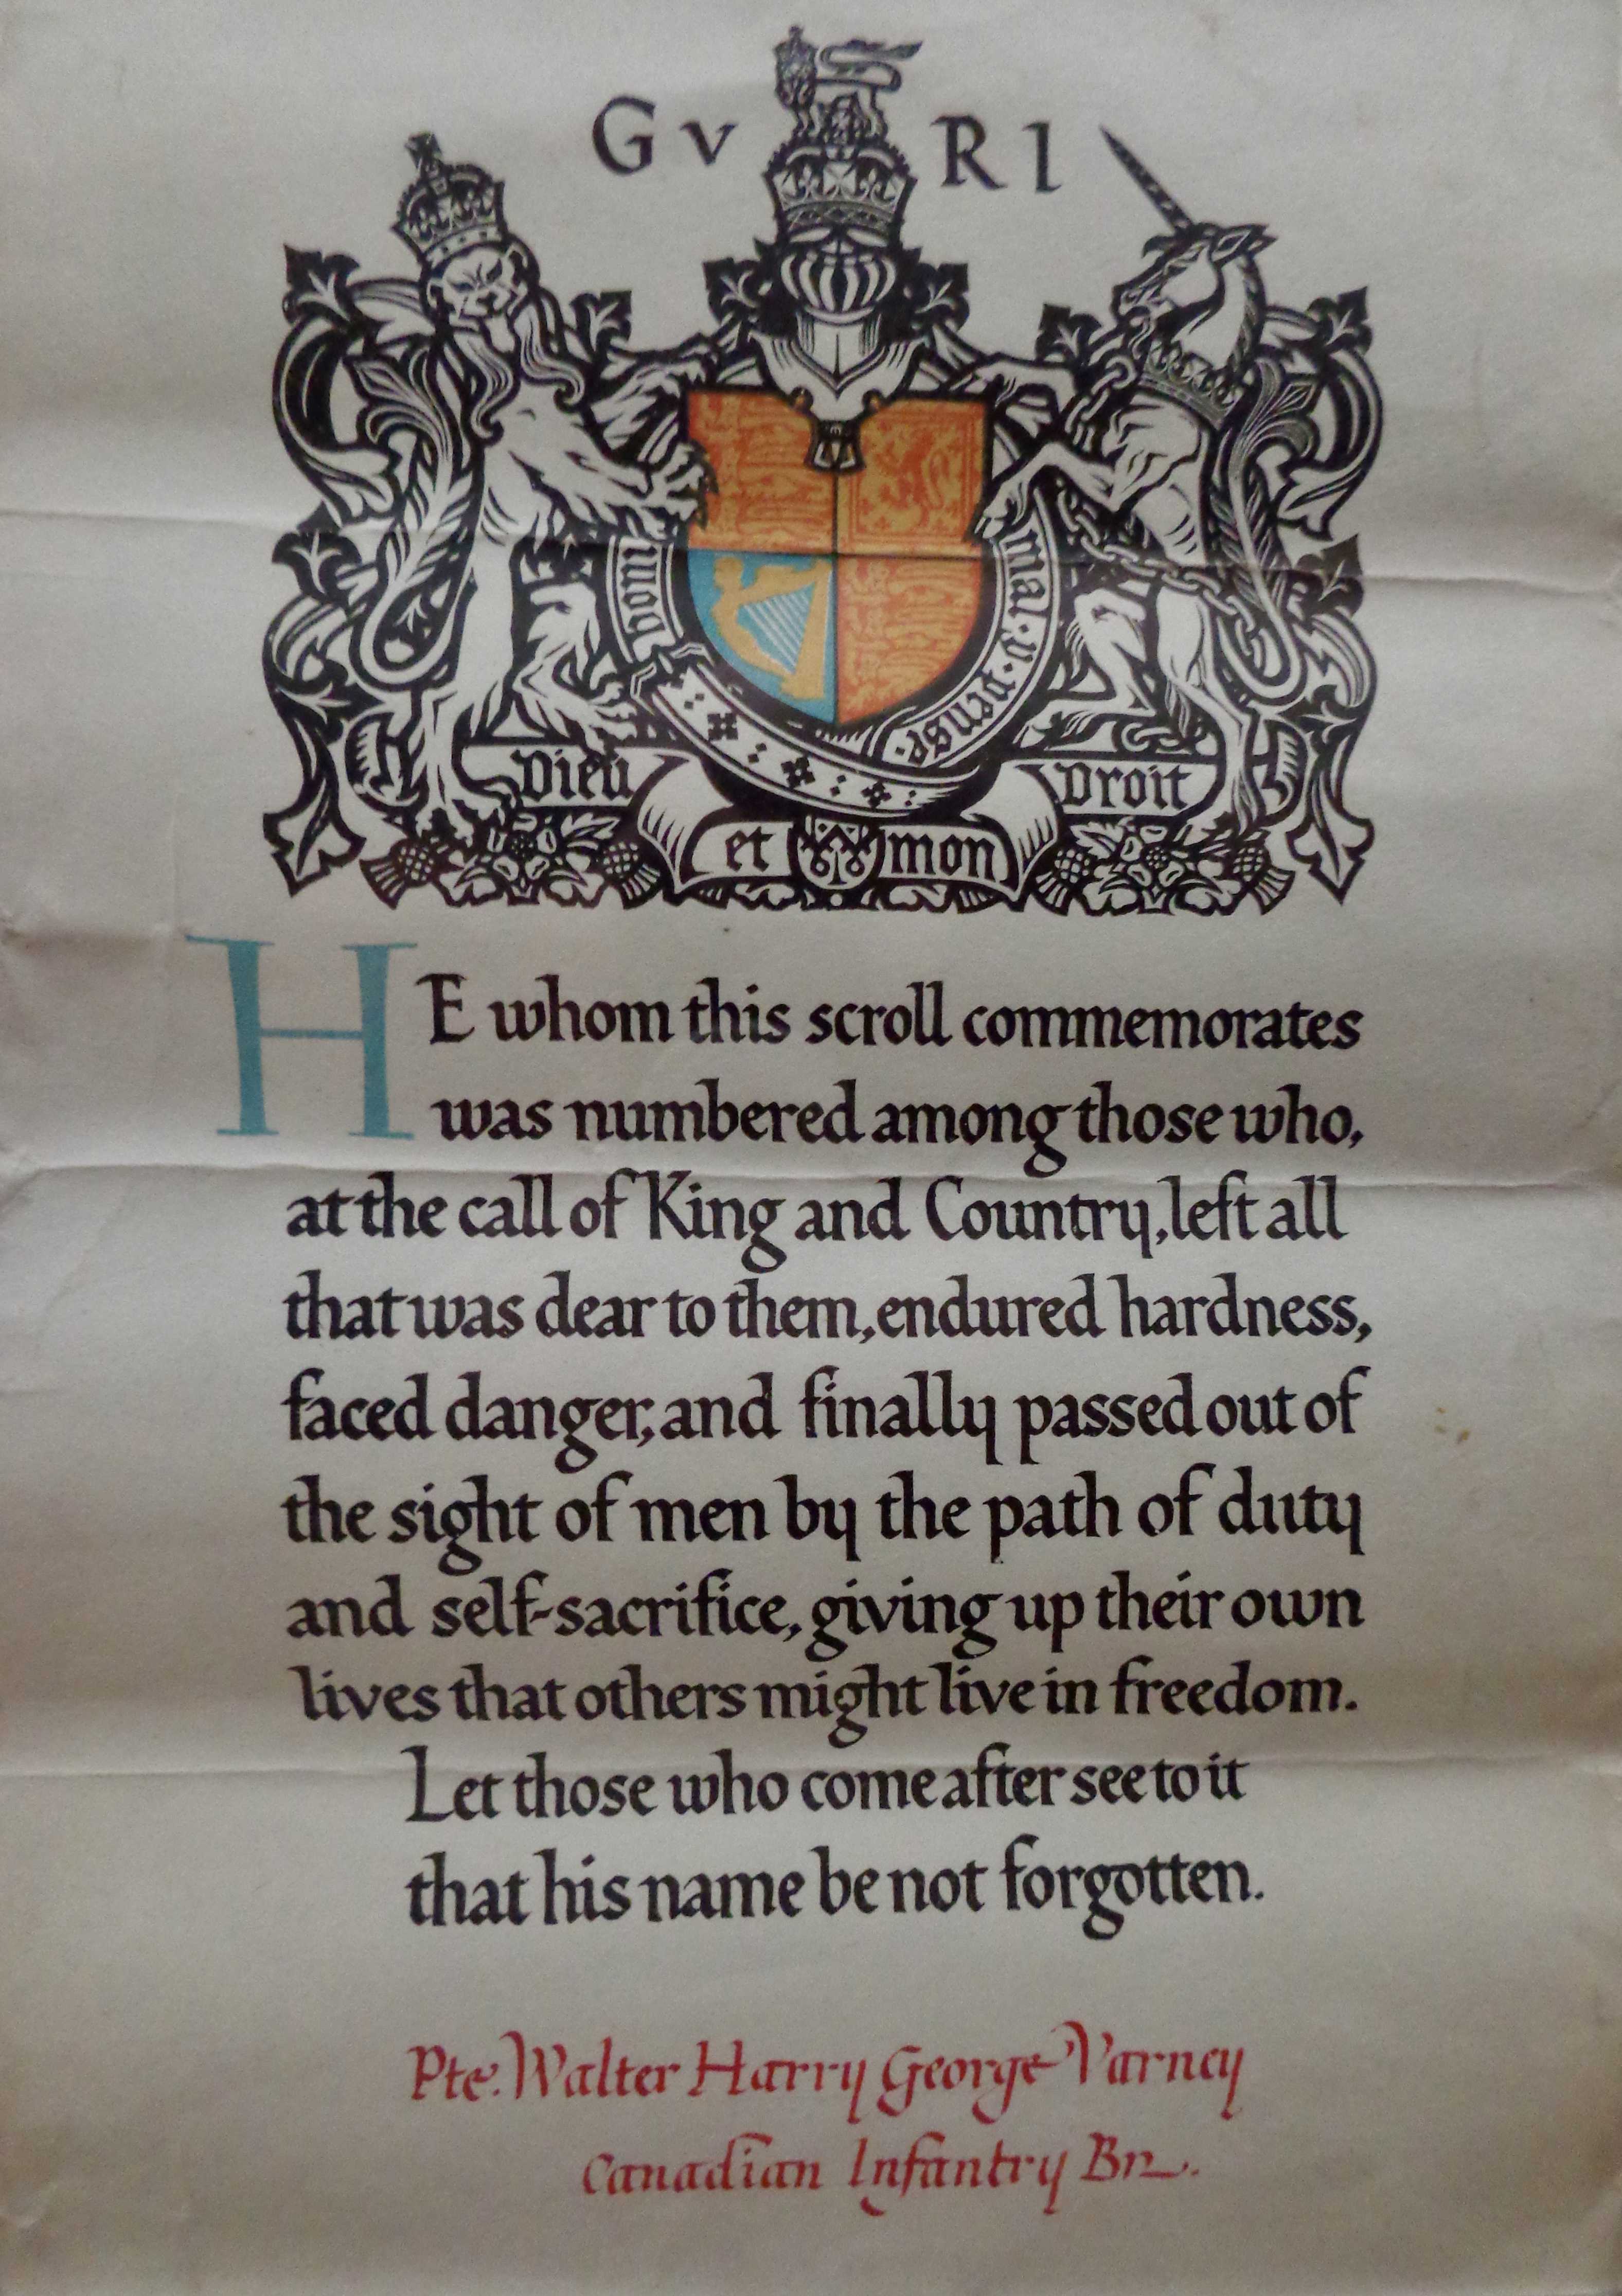 G V R I
honi
mal·y·pense·
Dieu Droit
et mon
HE whom this scroll commemorates
was numbered among those who,
at the call of King and Country, left all
that was dear to them, endured hardness,
faced danger, and finally passed out of
the sight of men by the path of duty
and self-sacrifice, giving up their own
lives that others might live in freedom.
Let those who come after see to it
that his name be not forgotten.
Pte. Walter Harry George Varney
Canadian Infantry Bn.